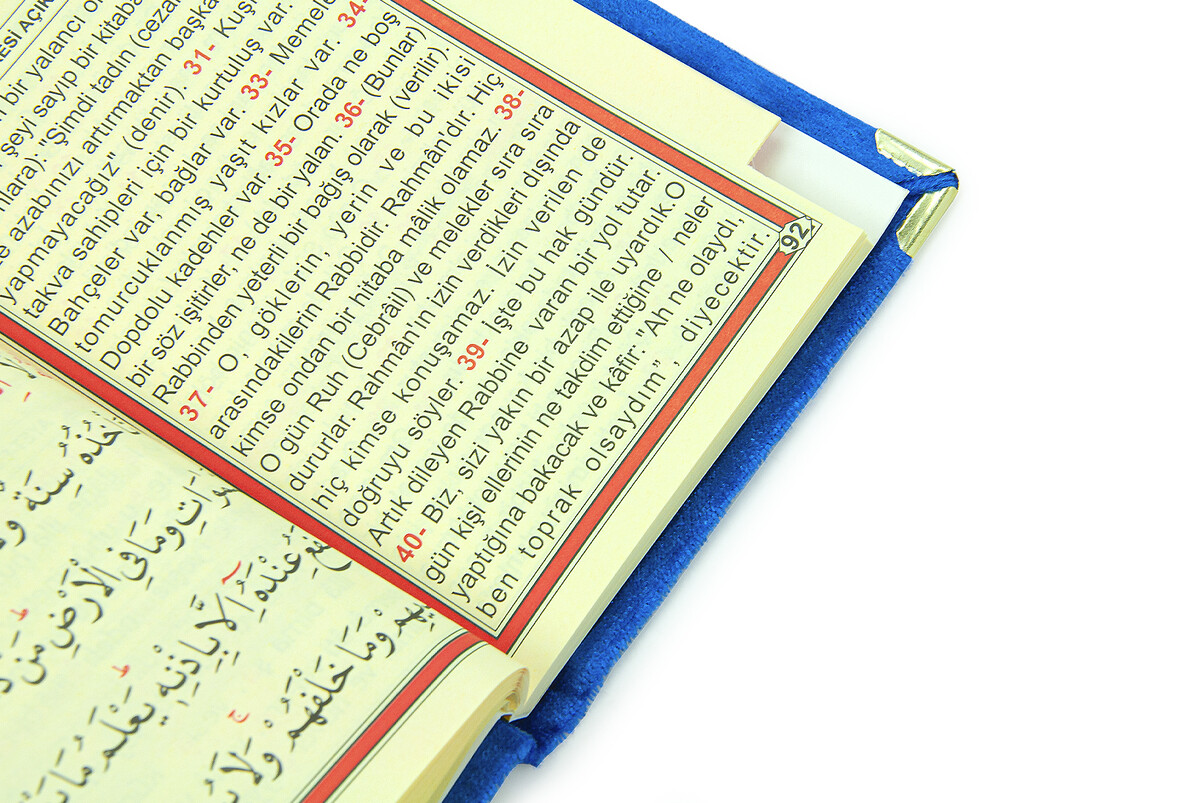 ESİ AÇIK
n bir yalancı o
şeyi sayıp bir kitaba
nlara): "Şimdi tadın (ceza
e azabınızı artırmaktan başka
yapmayacağız" (denir). 31- Kuş
takva sahipleri için bir kurtuluş var.
Bahçeler var, bağlar var. 33- Memele
tomurcuklanmış yaşıt kızlar var. 34-
Dopdolu kadehler var. 35- Orada ne boş
bir söz işitirler, ne de bir yalan. 36- (Bunlar)
Rabbinden yeterli bir bağış olarak (verilir).
37- O, göklerin, yerin ve bu ikisi
arasındakilerin Rabbidir. Rahmân'dır. Hiç
kimse ondan bir hitaba mâlik olamaz. 38-
O gün Ruh (Cebrâil) ve melekler sıra sıra
dururlar. Rahmân'ın izin verdikleri dışında
hiç kimse konuşamaz. İzin verilen de
doğruyu söyler. 39- İşte bu hak gündür.
Artık dileyen Rabbine varan bir yol tutar.
40- Biz, sizi yakın bir azap ile uyardık.O
gün kişi ellerinin ne takdim ettiğine / neler
yaptığına bakacak ve kâfir: "Ah ne olaydı,
ben toprak olsaydım", diyecektir.
92
خُذُهُ سِنَةٌ وَ
وَاتِ وَمَا فِى الْاَرْضِ مَنْ ذَ
عِنْدَهُٓ اِلَّا بِاِذْنِهٖ يَعْلَمُ مَا بَ
وَمَا خَلْفَهُمْ وَلَا يُ